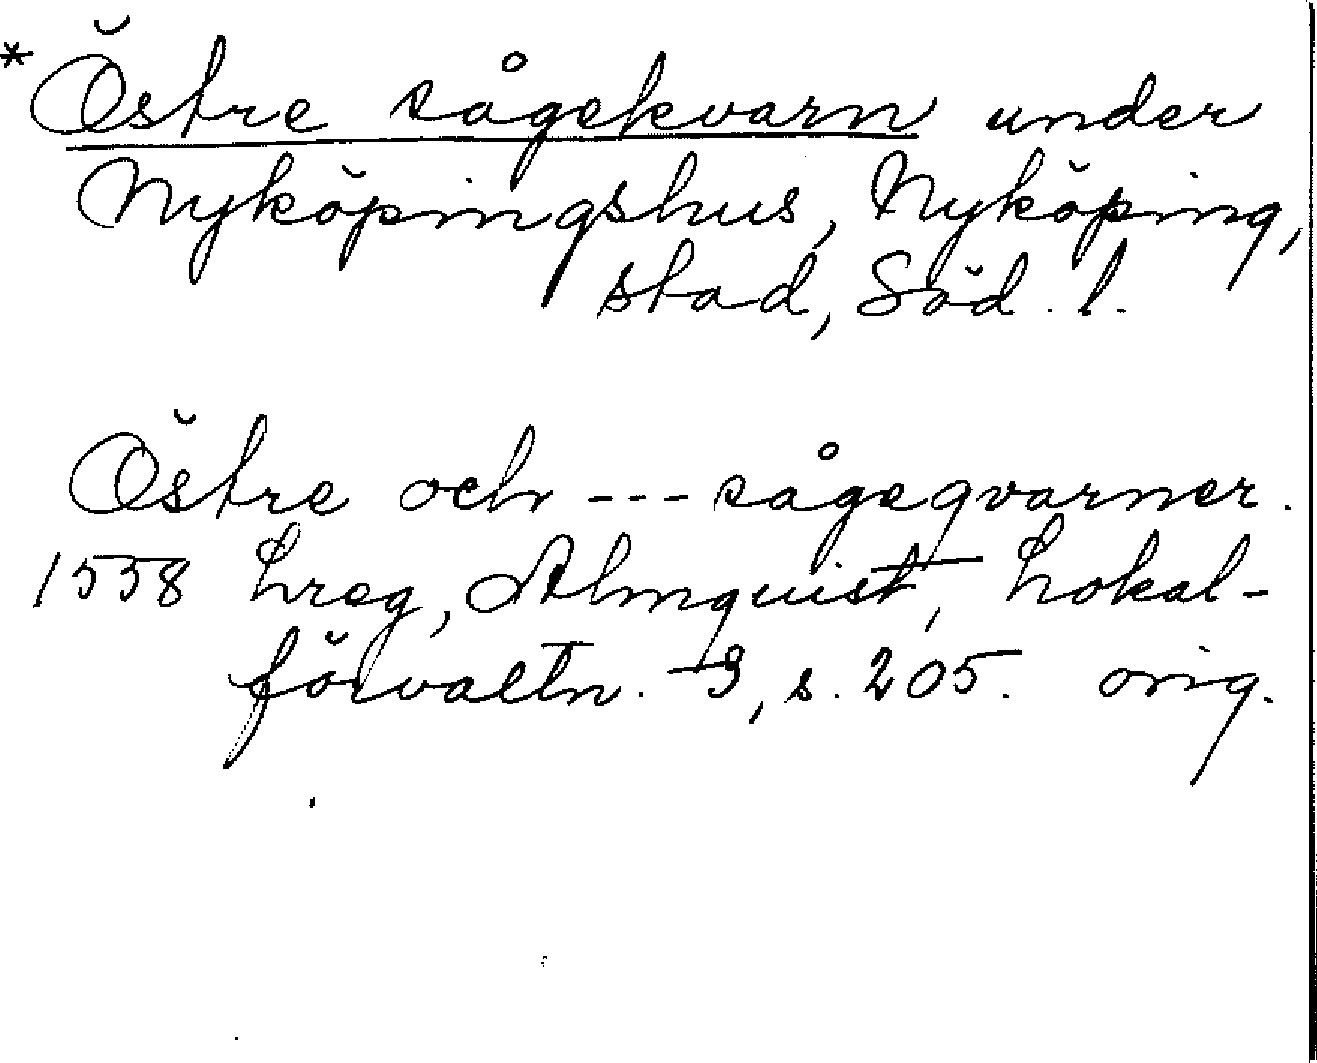 * Östre sågekvarn under
Nyköpingshus, Nyköping,
stad, Söd. l.
Östre och --- sågeqvarner.
1558 Lreg, Almquist, Lokal-
förvaltn. 3, s. 205. orig.